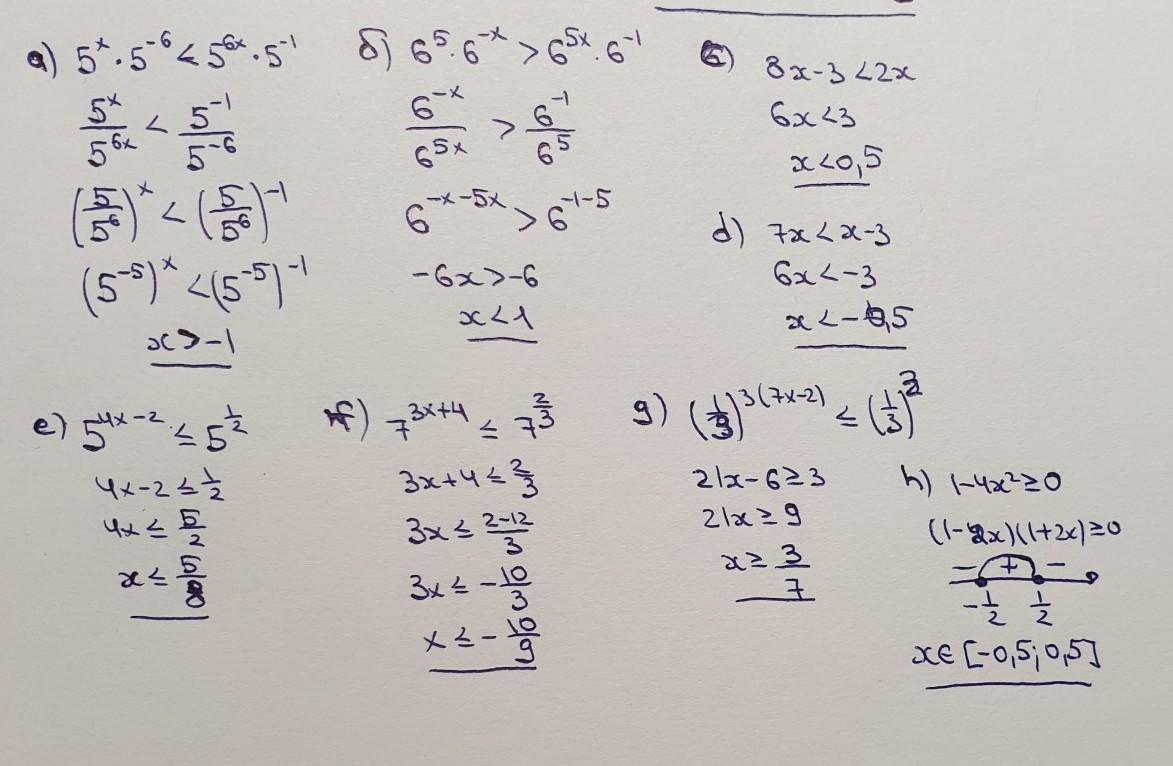 a) 5^x · 5^-6 < 5^6x · 5^-1
5^x/5^6x < 5^-1/5^-6
(5/5^6)^x < (5/5^6)^-1
(5^-5)^x < (5^-5)^-1
x > -1
б) 6^5 · 6^-x > 6^5x · 6^-1
6^-x/6^5x > 6^-1/6^5
6^(-x-5x) > 6^(-1-5)
-6x > -6
x < 1
8x-3 < 2x
6x < 3
x < 0,5
d) 7x < x-3
6x < -3
x < -0,5
e) 5^(4x-2) ≤ 5^(1/2)
4x-2 ≤ 1/2
4x ≤ 5/2
x ≤ 5/8
f) 7^(3x+4) ≤ 7^(2/3)
3x+4 ≤ 2/3
3x ≤ (2-12)/3
3x ≤ -10/3
x ≤ -10/9
g) (1/3)^(3(7x-2)) ≤ (1/3)^3
21x-6 ≥ 3
21x ≥ 9
x ≥ 3/7
h) 1-4x² ≥ 0
(1-2x)(1+2x) ≥ 0
- + -
-1/2 1/2
x ∈ [-0,5; 0,5]